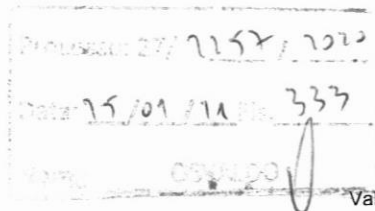 Processo: 27/ 2257 / 2020
Data: 25/01/21 Fls. 333
OSVALDO
Va